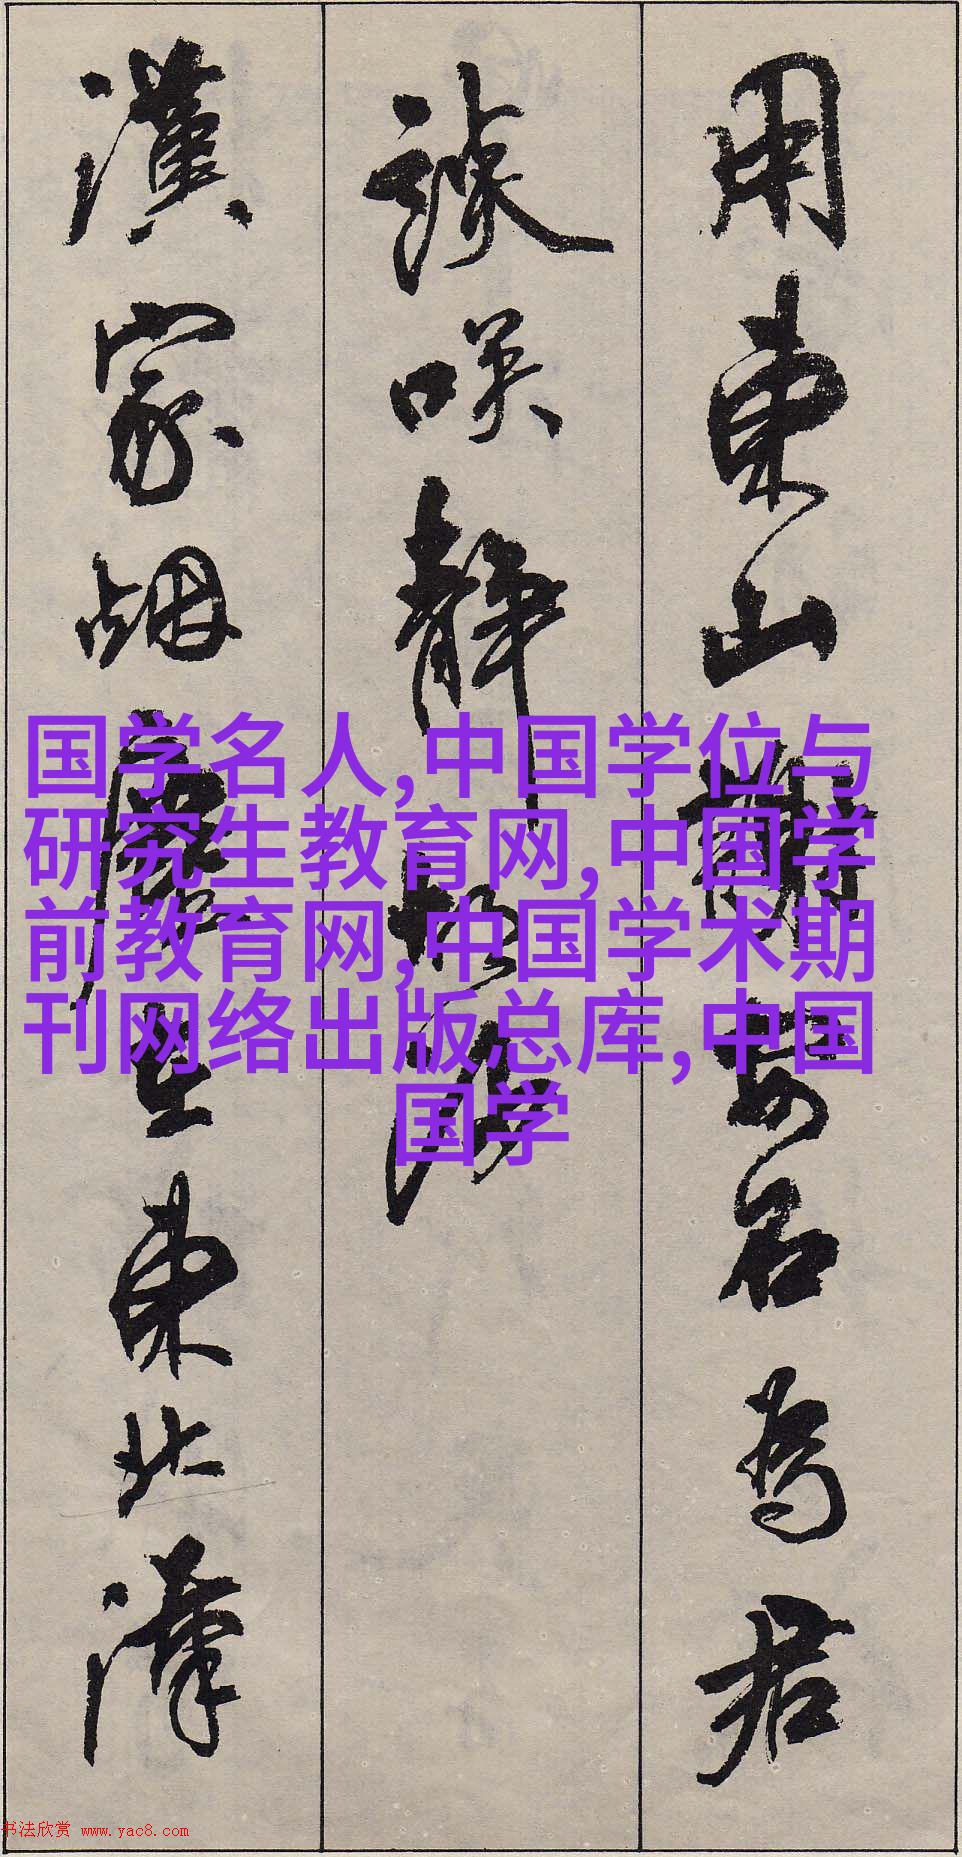 用東山謝安石為君
談咲靜胡沙
漢家烟塵在東北漢
国学名人,中国学位与
研究生教育网,中国学
前教育网,中国学术期
刊网络出版总库,中国
国学
书法欣赏 www.yac8.com